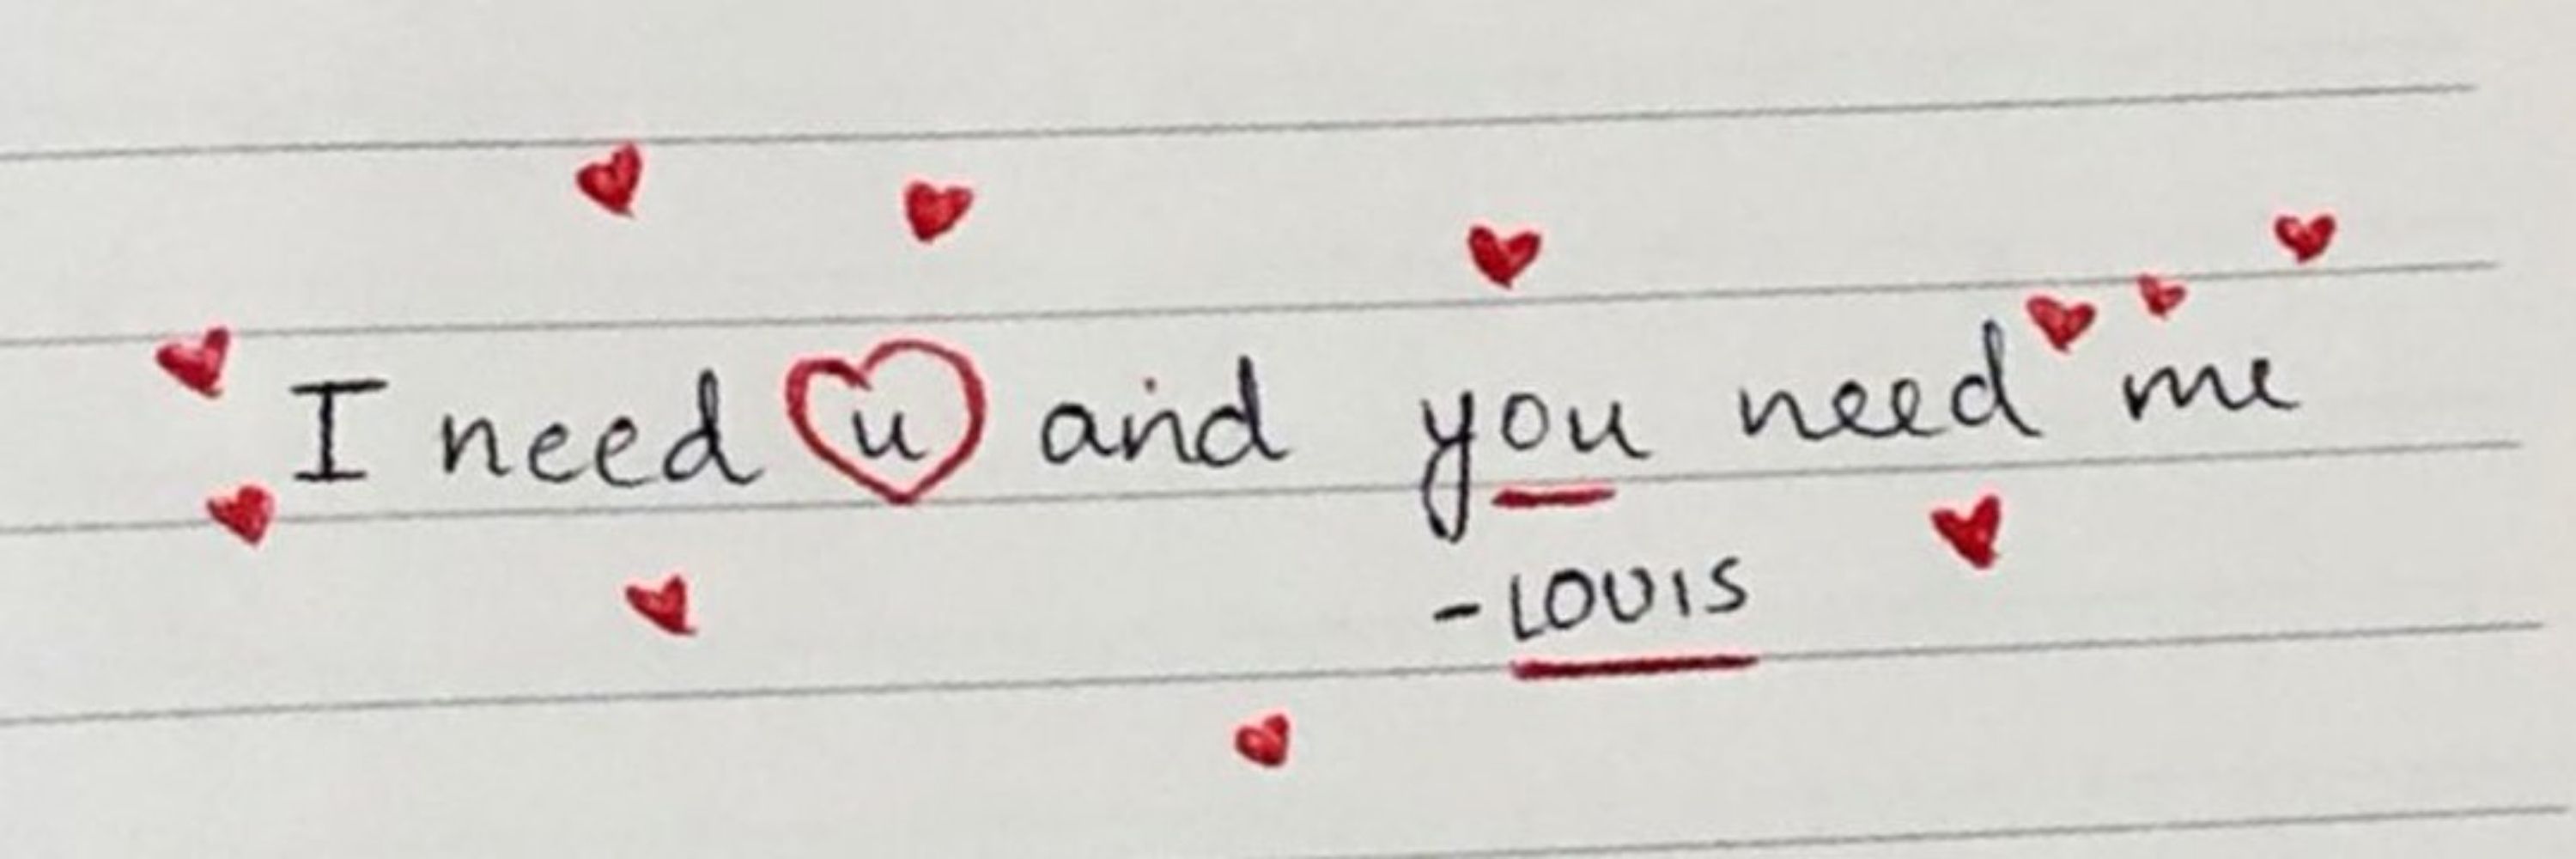 I need u and you need me
-LOUIS